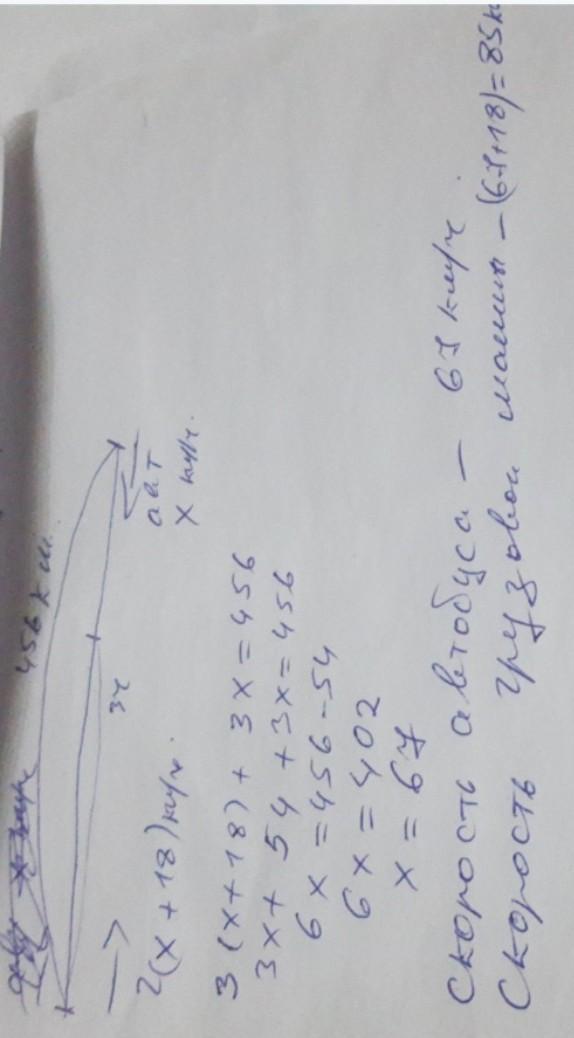 456 км.
3ч
авт
x км/ч.
2(x+18) км/ч.
3(x+18) + 3x = 456
3x + 54 + 3x = 456
6x = 456-54
6x = 402
x = 67
Скорость автобуса - 67 км/ч.
Скорость грузовой машины - (67+18)=85к